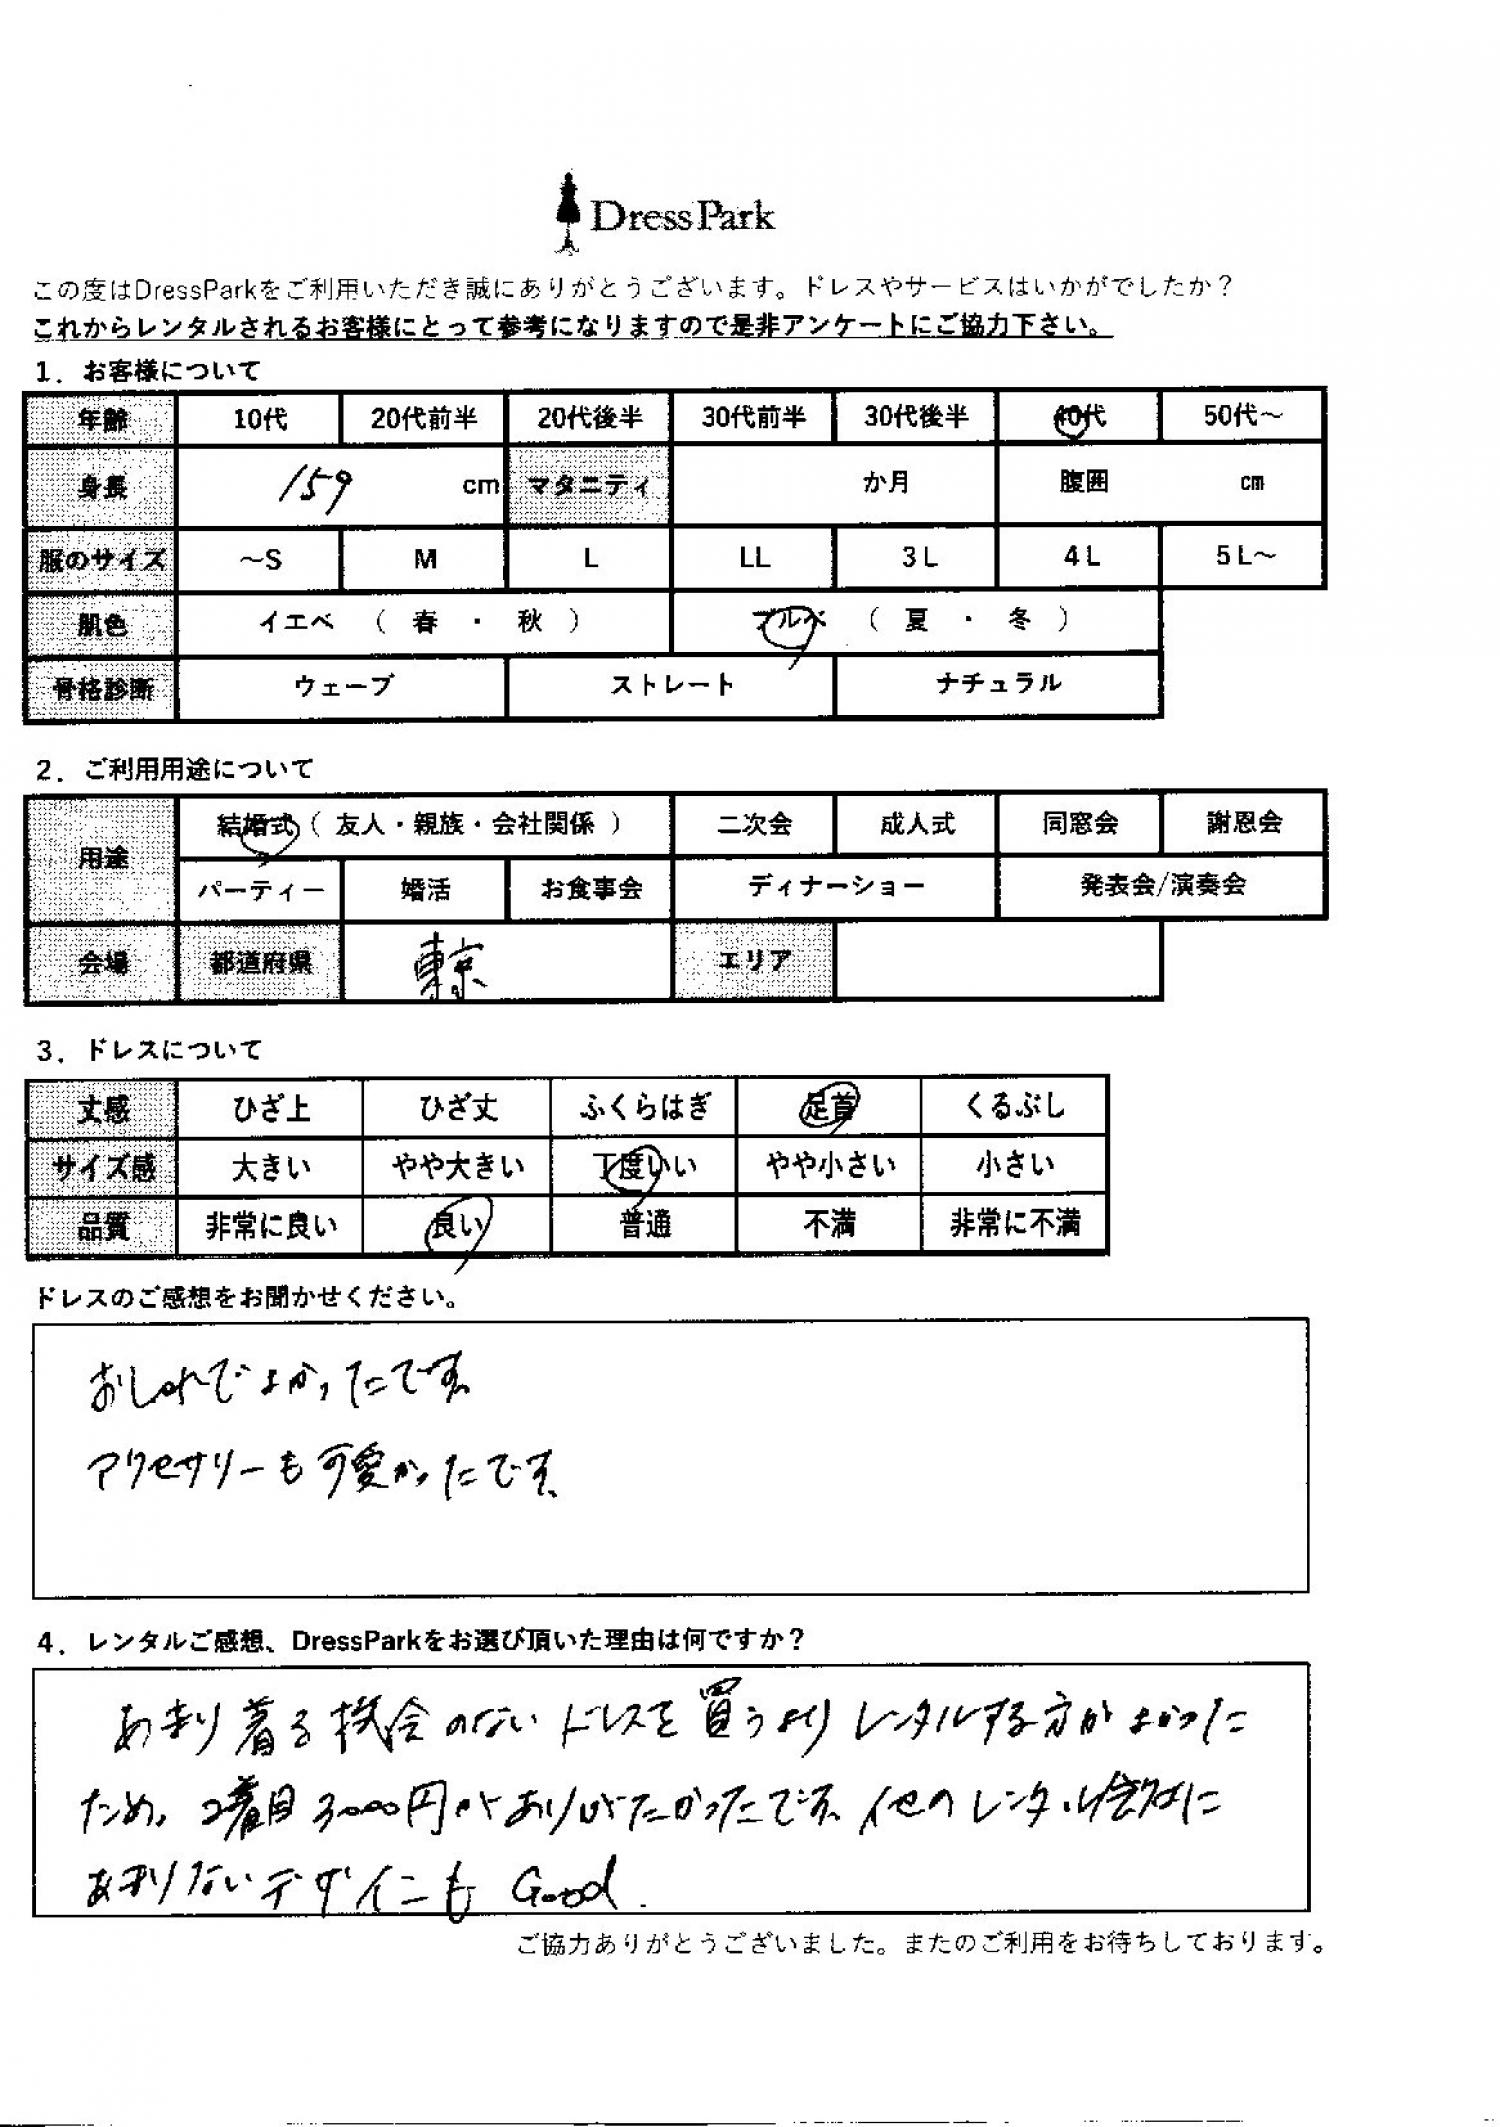 DressPark
この度はDressParkをご利用いただき誠にありがとうございます。ドレスやサービスはいかがでしたか？
これからレンタルされるお客様にとって参考になりますので是非アンケートにご協力下さい。
1．お客様について
年齢 10代 20代前半 20代後半 30代前半 30代後半 40代 50代～
身長 159 cm マタニティ か月 腹囲 cm
服のサイズ ～S M L LL 3L 4L 5L～
肌色 イエベ （ 春 ・ 秋 ） ブルベ （ 夏 ・ 冬 ）
骨格診断 ウェーブ ストレート ナチュラル
2．ご利用用途について
用途 結婚式（ 友人・親族・会社関係 ） 二次会 成人式 同窓会 謝恩会
パーティー 婚活 お食事会 ディナーショー 発表会/演奏会
会場 都道府県 東京 エリア
3．ドレスについて
丈感 ひざ上 ひざ丈 ふくらはぎ 足首 くるぶし
サイズ感 大きい やや大きい 丁度いい やや小さい 小さい
品質 非常に良い 良い 普通 不満 非常に不満
ドレスのご感想をお聞かせください。
おしゃれでよかったです。
アクセサリーも可愛かったです。
4．レンタルご感想、DressParkをお選び頂いた理由は何ですか？
あまり着る機会のないドレスを買うよりレンタルする方がよかった
ため。2着目3000円がありがたかったです。他のレンタル会社に
あまりないデザインも Good.
ご協力ありがとうございました。またのご利用をお待ちしております。